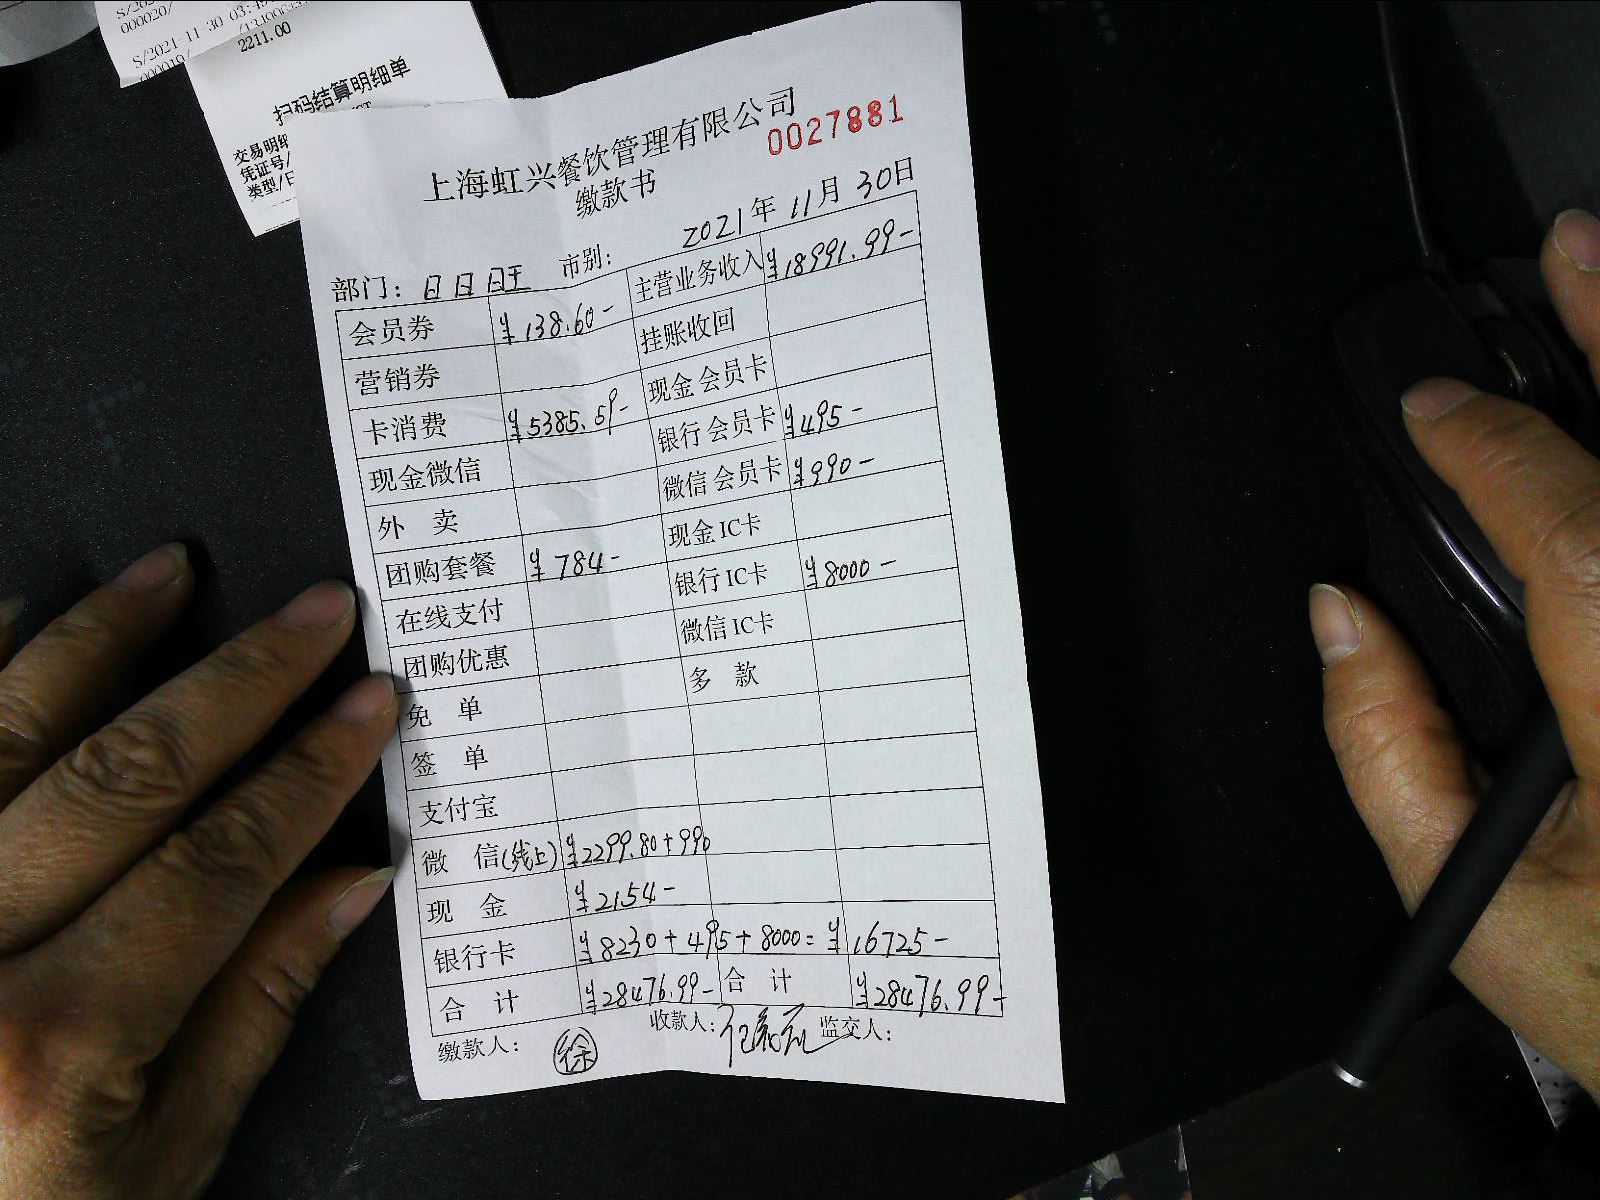 000020/
S/2021-11-30 03:
000019/
2211.00
扫码结算明细单
交易明细
凭证号/
类型/
上海虹兴餐饮管理有限公司
0027881
缴款书
2021年 11月 30日
部门: 日日旺 市别:
会员券 ¥138.60- 主营业务收入 ¥18991.99-
营销券 挂账收回
卡消费 ¥5385.59- 现金会员卡
现金微信 银行会员卡 ¥495-
外 卖 微信会员卡 ¥990-
团购套餐 ¥784- 现金IC卡
在线支付 银行IC卡 ¥8000-
团购优惠 微信IC卡
免 单 多 款
签 单
支付宝
微 信(线上) ¥2299.80+990
现 金 ¥2154-
银行卡 ¥8230+495+8000=¥16725-
合 计 ¥28476.99- 合 计 ¥28476.99-
缴款人: 徐 收款人: 监交人: